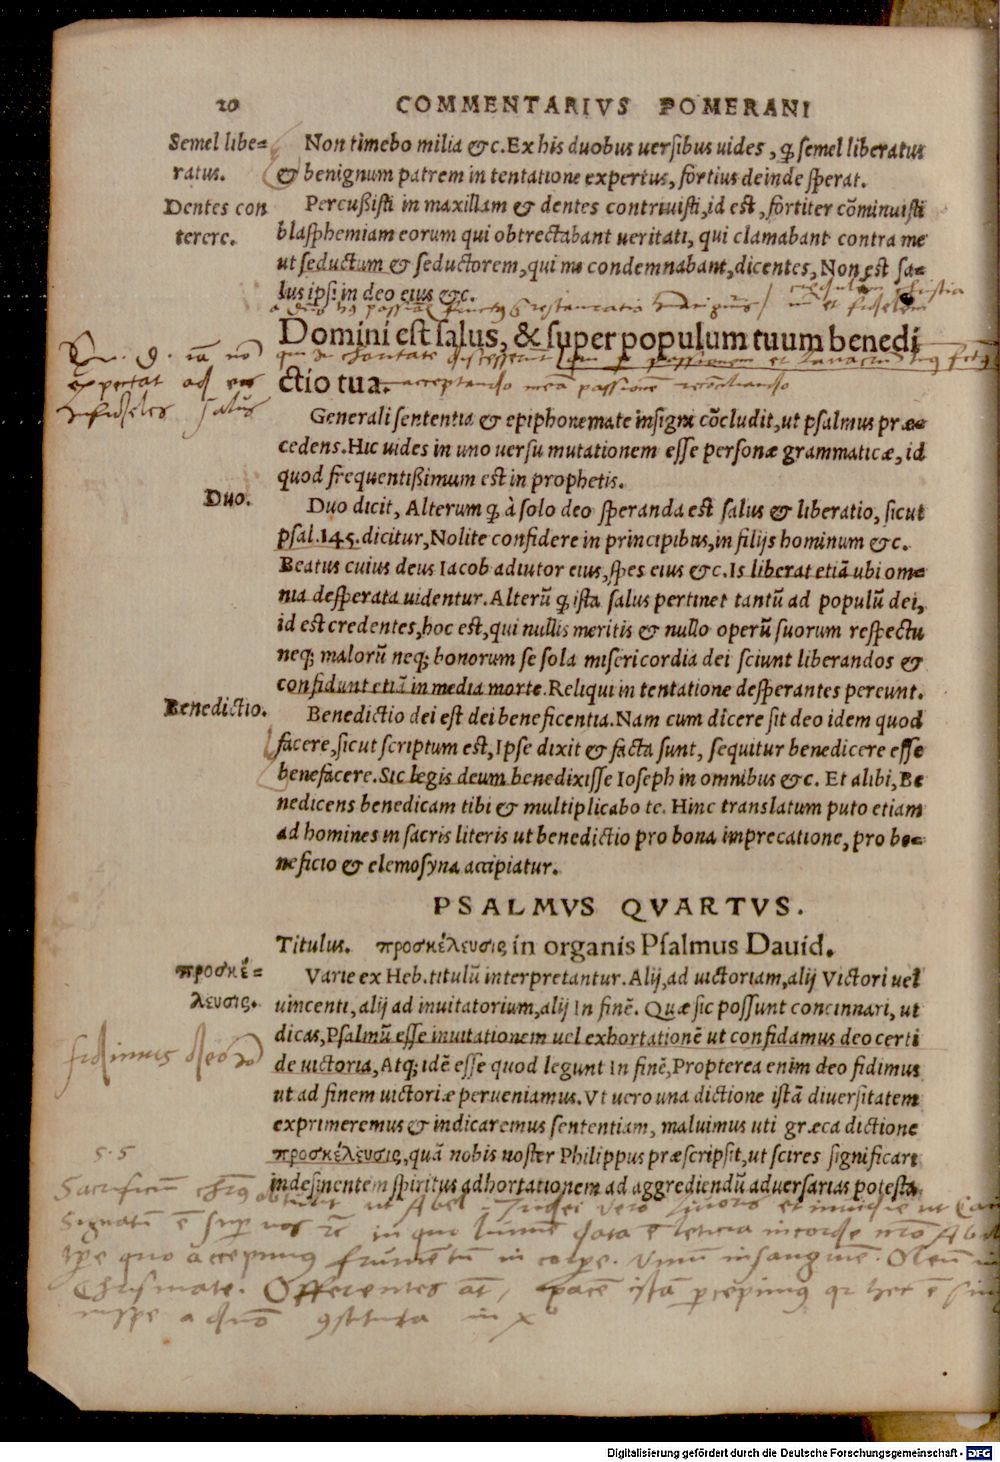 20 COMMENTARIVS POMERANI
Semel libe=
ratus.
Non timebo milia &c. Ex his duobus uersibus uides, ꝙ semel liberatus
& benignum patrem in tentatione expertus, fortius deinde sperat.
Dentes con
terere.
Percußisti in maxillam & dentes contriuisti, id est, fortiter cōminuisti
blasphemiam eorum qui obtrectabant ueritati, qui clamabant contra me
ut seductum & seductorem, qui me condemnabant, dicentes, Non est sa=
lus ipsi in deo eius &c.
Domini est salus, & super populum tuum benedi
ctio tua.
acceptando mea passione
infideles salus
Generali sententia & epiphonemate insigni cōcludit, ut psalmus præ=
cedens. Hic uides in uno uersu mutationem esse personæ grammaticæ, id
quod frequentißimum est in prophetis.
Duo.
Duo dicit, Alterum ꝙ à solo deo speranda est salus & liberatio, sicut
psal. 145. dicitur, Nolite confidere in principibus, in filijs hominum &c.
Beatus cuius deus Iacob adiutor eius, spes eius &c. Is liberat etiā ubi om=
nia desperata uidentur. Alterū ꝙ ista salus pertinet tantū ad populū dei,
id est credentes, hoc est, qui nullis meritis & nullo operū suorum respectu
neq; malorū neq; bonorum se sola misericordia dei sciunt liberandos &
confidunt etiā in media morte. Reliqui in tentatione desperantes pereunt.
Benedictio.
Benedictio dei est dei beneficentia. Nam cum dicere sit deo idem quod
facere, sicut scriptum est, Ipse dixit & facta sunt, sequitur benedicere esse
benefacere. Sic legis deum benedixisse Ioseph in omnibus &c. Et alibi, Be
nedicens benedicam tibi & multiplicabo te. Hinc translatum puto etiam
ad homines in sacris literis ut benedictio pro bona imprecatione, pro be=
neficio & elemosyna accipiatur.
PSALMVS QVARTVS.
Titulus. προσκέλευσις in organis Psalmus Dauid.
προσκέ=
λευσις.
Varie ex Heb. titulū interpretantur. Alij, ad uictoriam, alij Victori uel
uincenti, alij ad inuitatorium, alij In finē. Quæ sic possunt concinnari, ut
dicas, Psalmū esse inuitationem uel exhortationē ut confidamus deo certi
de uictoria, Atq; idē esse quod legunt In finē, Propterea enim deo fidimus
fidimus deo
ut ad finem uictoriæ perueniamus. Vt uero una dictione istā diuersitatem
exprimeremus & indicaremus sententiam, maluimus uti græca dictione
προσκέλευσις, quā nobis noster Philippus præscripsit, ut scires significari
indesinentem spiritus adhortationem ad aggrediendū aduersarias potesta
Sacrificiū ut Abel
Signatū ē super nos in quo data ē leticia in corde
quo frumentū in Vinū in sanguinē. Oleū
Chrismate. Offerentes
a quo in
Digitalisierung gefördert durch die Deutsche Forschungsgemeinschaft - DFG